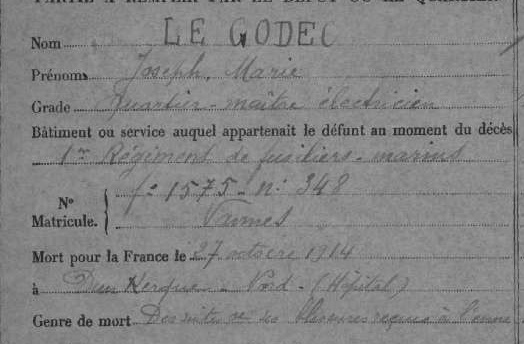 PARTIE À REMPLIR PAR LE DÉPÔT OU LE QUARTIER
Nom LE GODEC
Prénoms Joseph, Marie
Grade Quartier-maître électricien
Bâtiment ou service auquel appartenait le défunt au moment du décès
1er Régiment de fusiliers-marins
N° Matricule. f° 1575 - n° 348
Vannes
Mort pour la France le 27 octobre 1914
à Dunkerque - Nord - (Hôpital)
Genre de mort Des suites de ses blessures reçues à l'ennemi